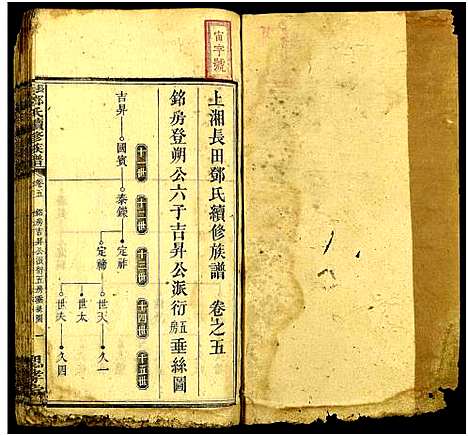 寅字號
上湘長田鄧氏續修族譜 卷之五
銘房登朔公六子吉昇公派衍五房垂絲圖
十一世 十二世 十三世 十四世 十五世
吉昇 國賓 泰鑁 定祚
定禘 世天 久一
世太
世夫 久四
長田鄧氏續修族譜 卷五 銘房吉昇公派衍五房垂絲圖 一